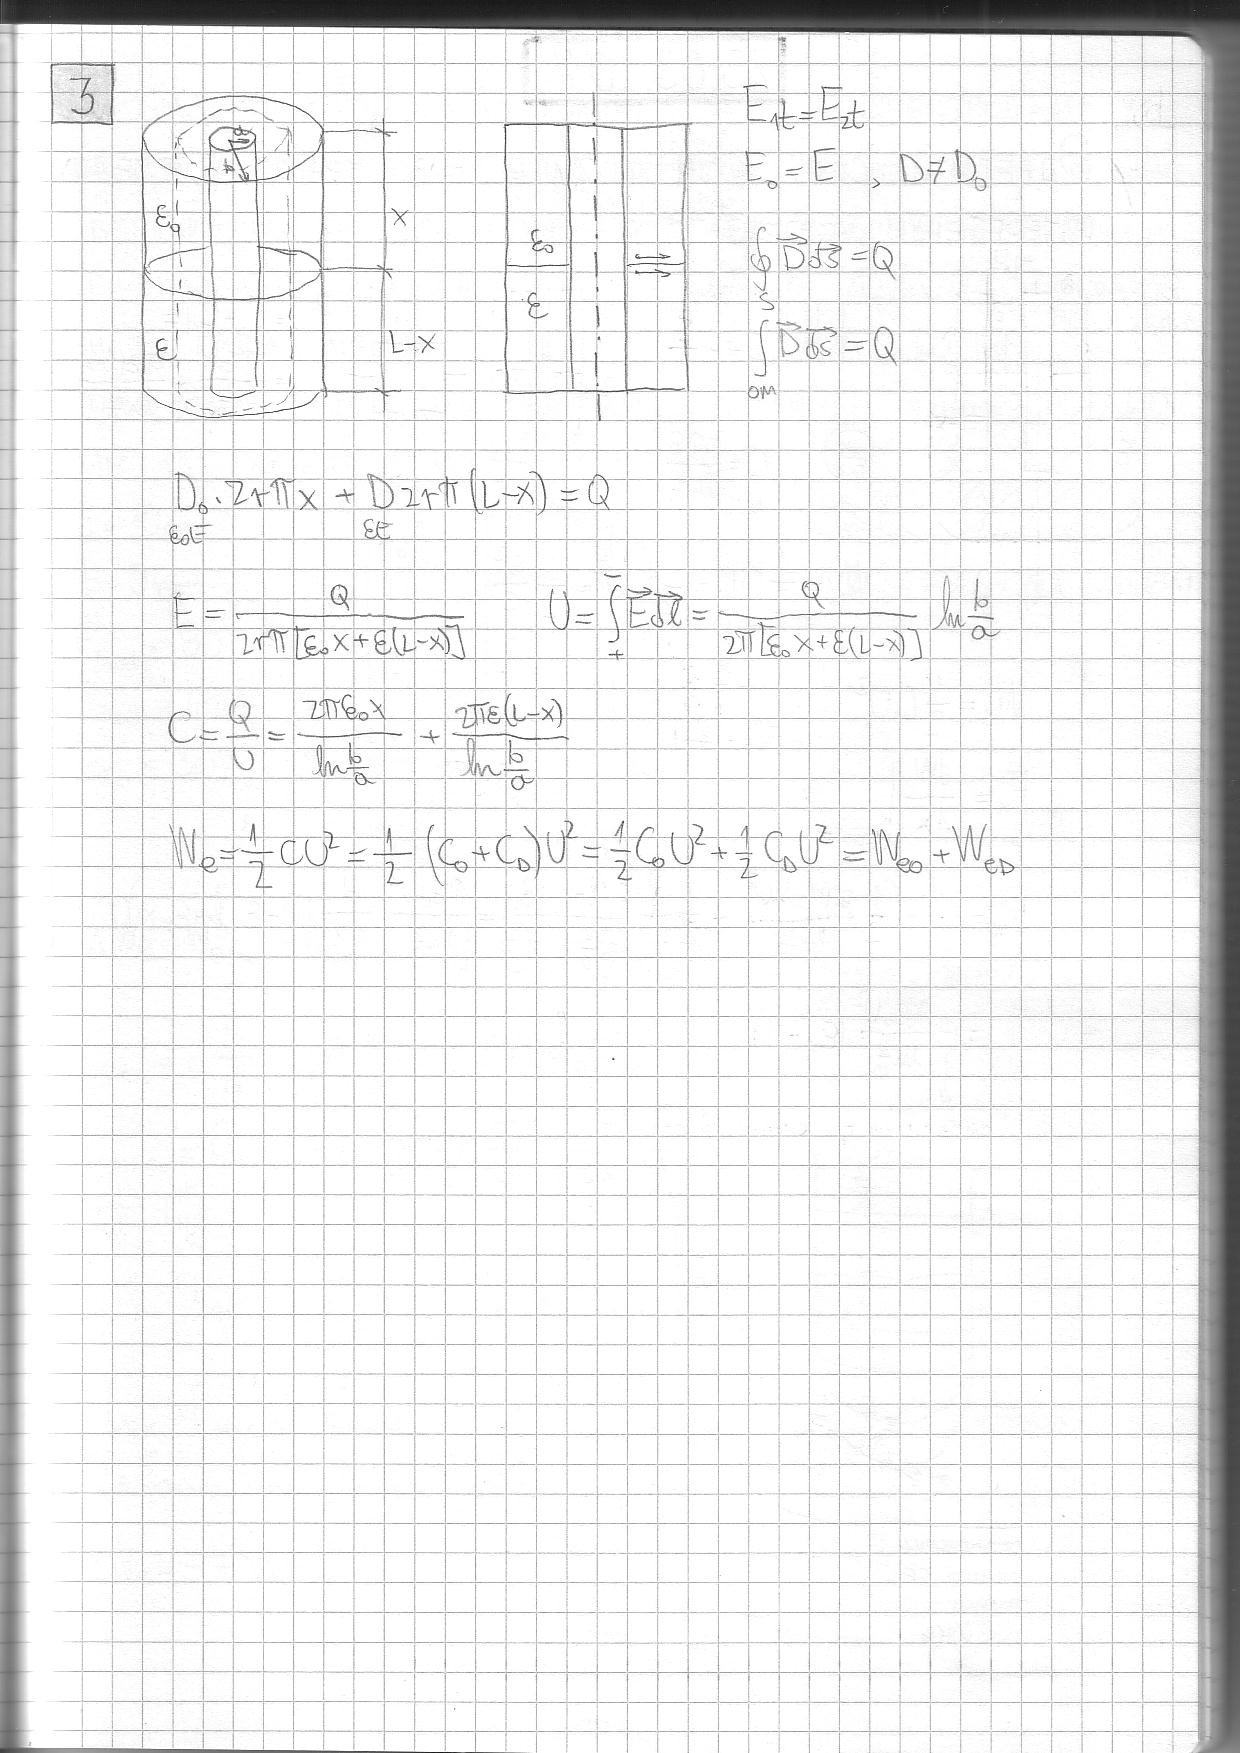 3
a
b
ε₀
x
ε
L-x
ε₀
ε
E₁t = E₂t
E₀ = E , D ≠ D₀
∮ D⃗ ds⃗ = Q
S
∫ D⃗ ds⃗ = Q
OM
D₀ · 2rπx + D2rπ(L-x) = Q
ε₀E εE
E = Q / 2rπ[ε₀x+ε(L-x)] U = ∫₊⁻ E⃗ dl⃗ = Q / 2π[ε₀x+ε(L-x)] ln b/a
C = Q/U = 2πε₀x / ln b/a + 2πε(L-x) / ln b/a
We = 1/2 CU² = 1/2 (C₀+C_D)U² = 1/2 C₀U² + 1/2 C_DU² = We₀ + We_D